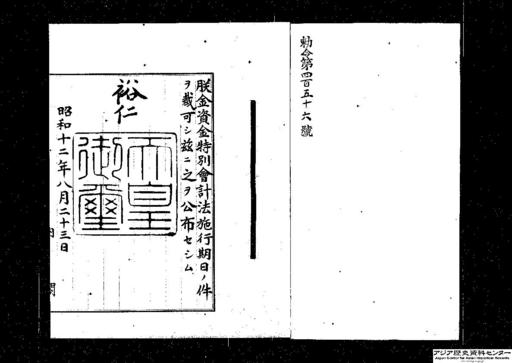 勅令第四百五十六號
朕金資金特別會計法施行期日ノ件
ヲ裁可シ茲ニ之ヲ公布セシム
裕仁
天皇
御璽
昭和十二年八月二十三日
アジア歴史資料センター
Japan Center for Asian Historical Records